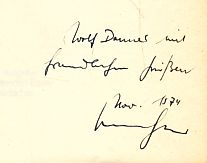 Wolf Donner mit
freundlichen Grüßen
Nov. 1974